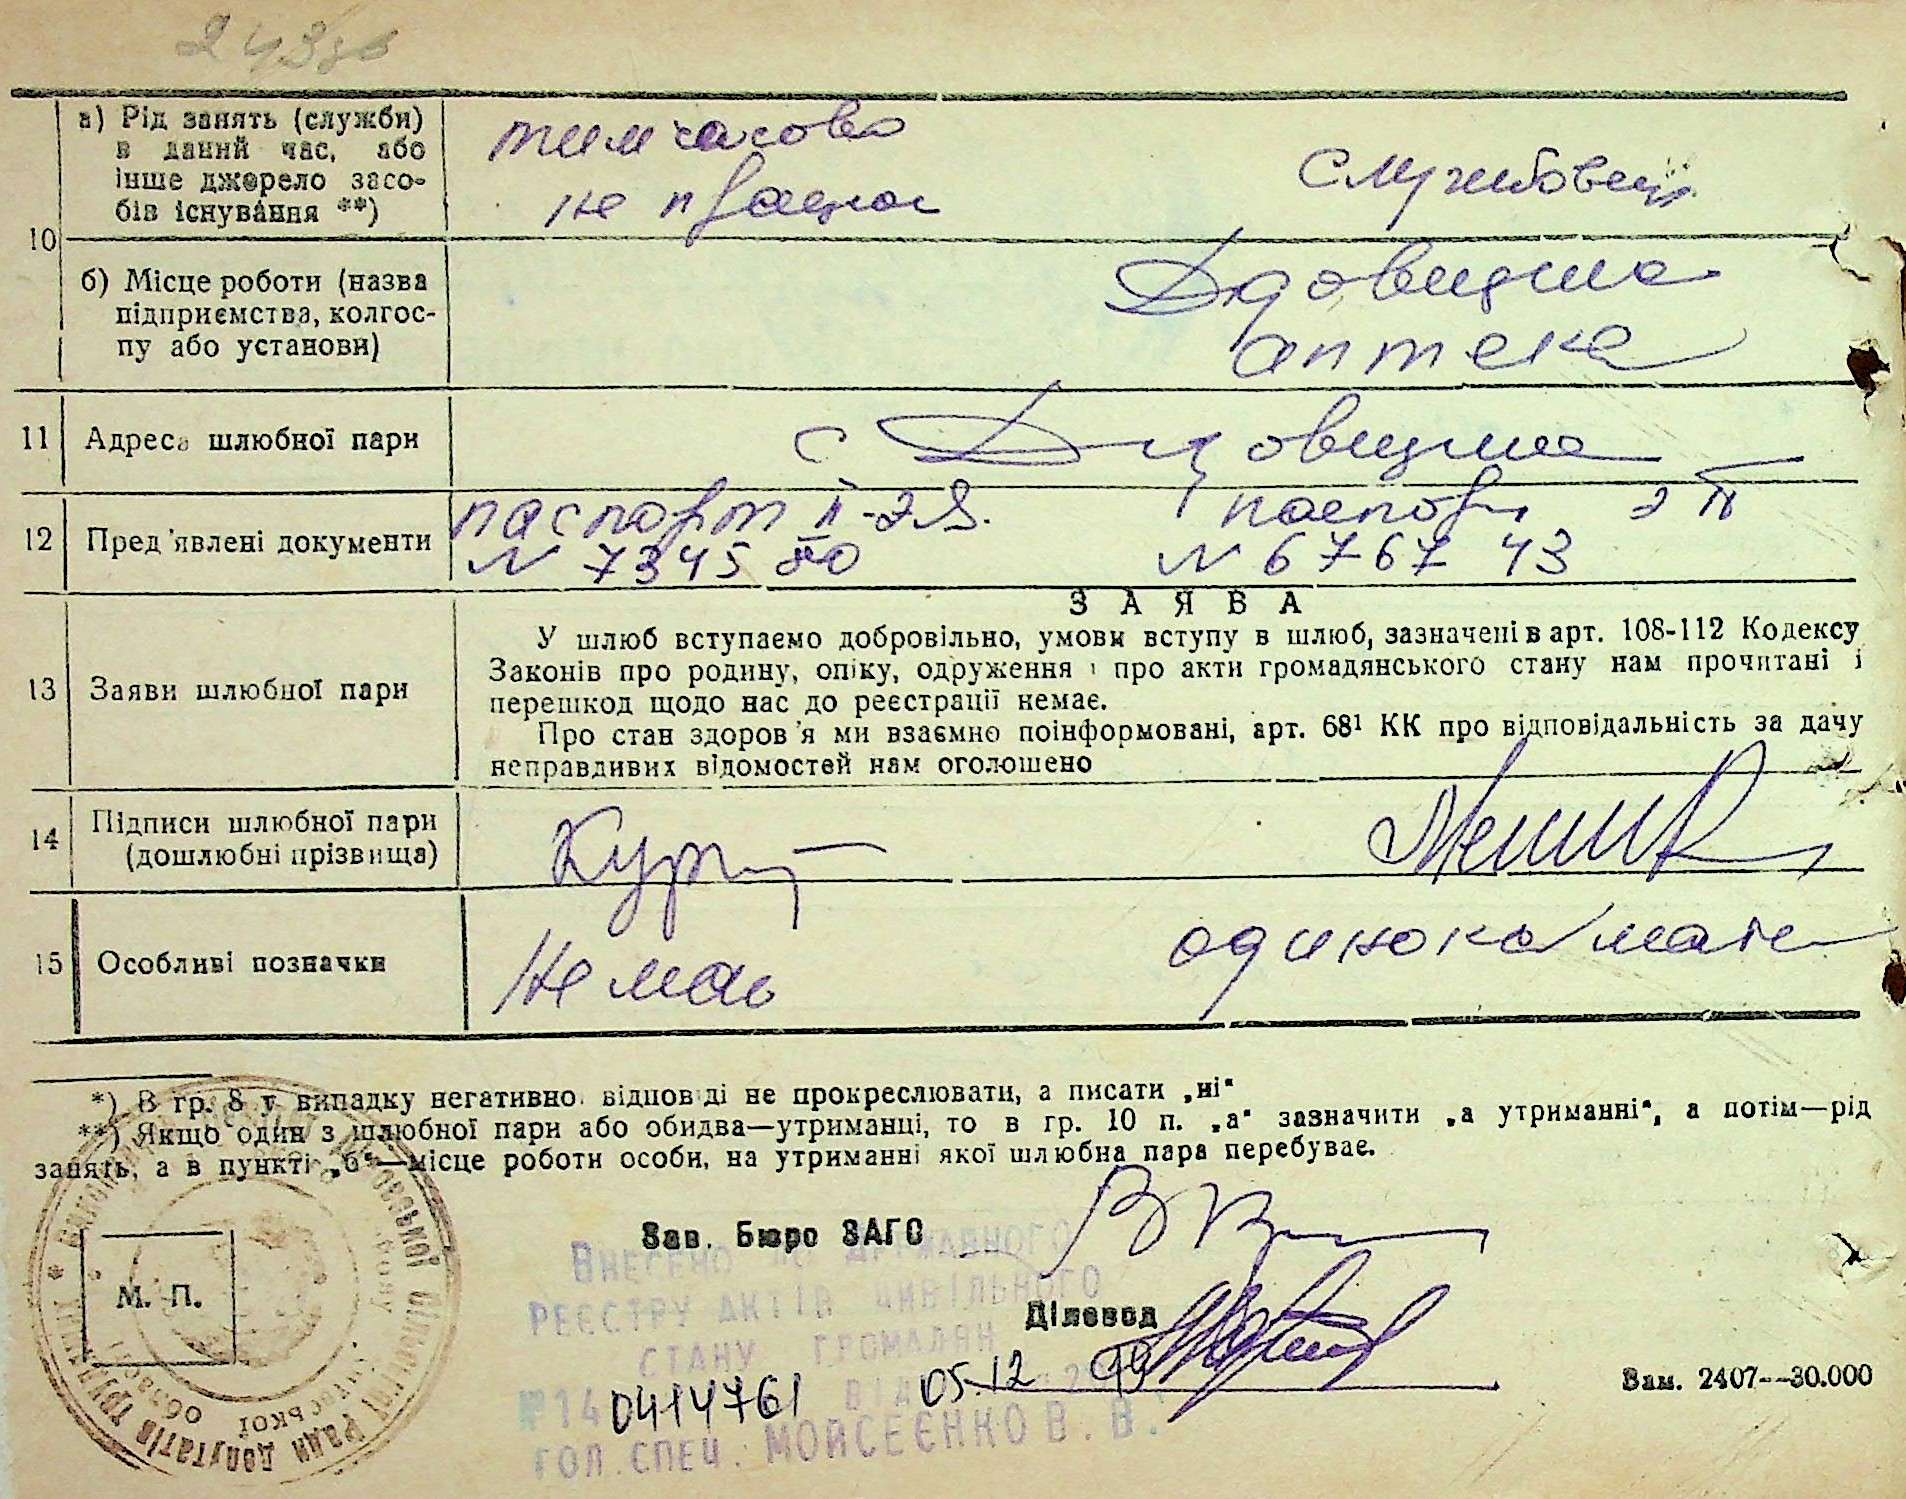 243зв
а) Рід занять (служби)
в даний час, або
інше джерело засо-
бів існування **)
тимчасово
не працює
службовець
10
б) Місце роботи (назва
підприємства, колгос-
пу або установи)
Дідовецька
аптека
11 Адреса шлюбної пари
с
12 Пред'явлені документи
паспорт II-ЭЯ.
N 734580
паспорт
N 676743
13 Заяви шлюбної пари
ЗАЯВА
У шлюб вступаємо добровільно, умови вступу в шлюб, зазначені в арт. 108-112 Кодексу
Законів про родину, опіку, одруження і про акти громадянського стану нам прочитані і
перешкод щодо нас до реєстрації немає.
Про стан здоров'я ми взаємно поінформовані, арт. 68¹ КК про відповідальність за дачу
неправдивих відомостей нам оголошено
14 Підписи шлюбної пари
(дошлюбні прізвища)
15 Особливі позначки
немає
одинока мати
*) В гр. 8 у випадку негативної відповіді не прокреслювати, а писати „ні“
**) Якщо один з шлюбної пари або обидва—утриманці, то в гр. 10 п. „а“ зазначити „а утриманні“, а потім—рід
занять, а в пункті „б“—місце роботи особи, на утриманні якої шлюбна пара перебуває.
Зав. Бюро ЗАГС
Діловод
М. П.
ВНЕСЕНО ДО ДЕРЖАВНОГО
РЕЄСТРУ АКТІВ ЦИВІЛЬНОГО
СТАНУ ГРОМАДЯН
№ 14 0414761 ВІД 05.12
ГОЛ. СПЕЦ. МОЙСЕЄНКО В. В.
Зам. 2407—30.000